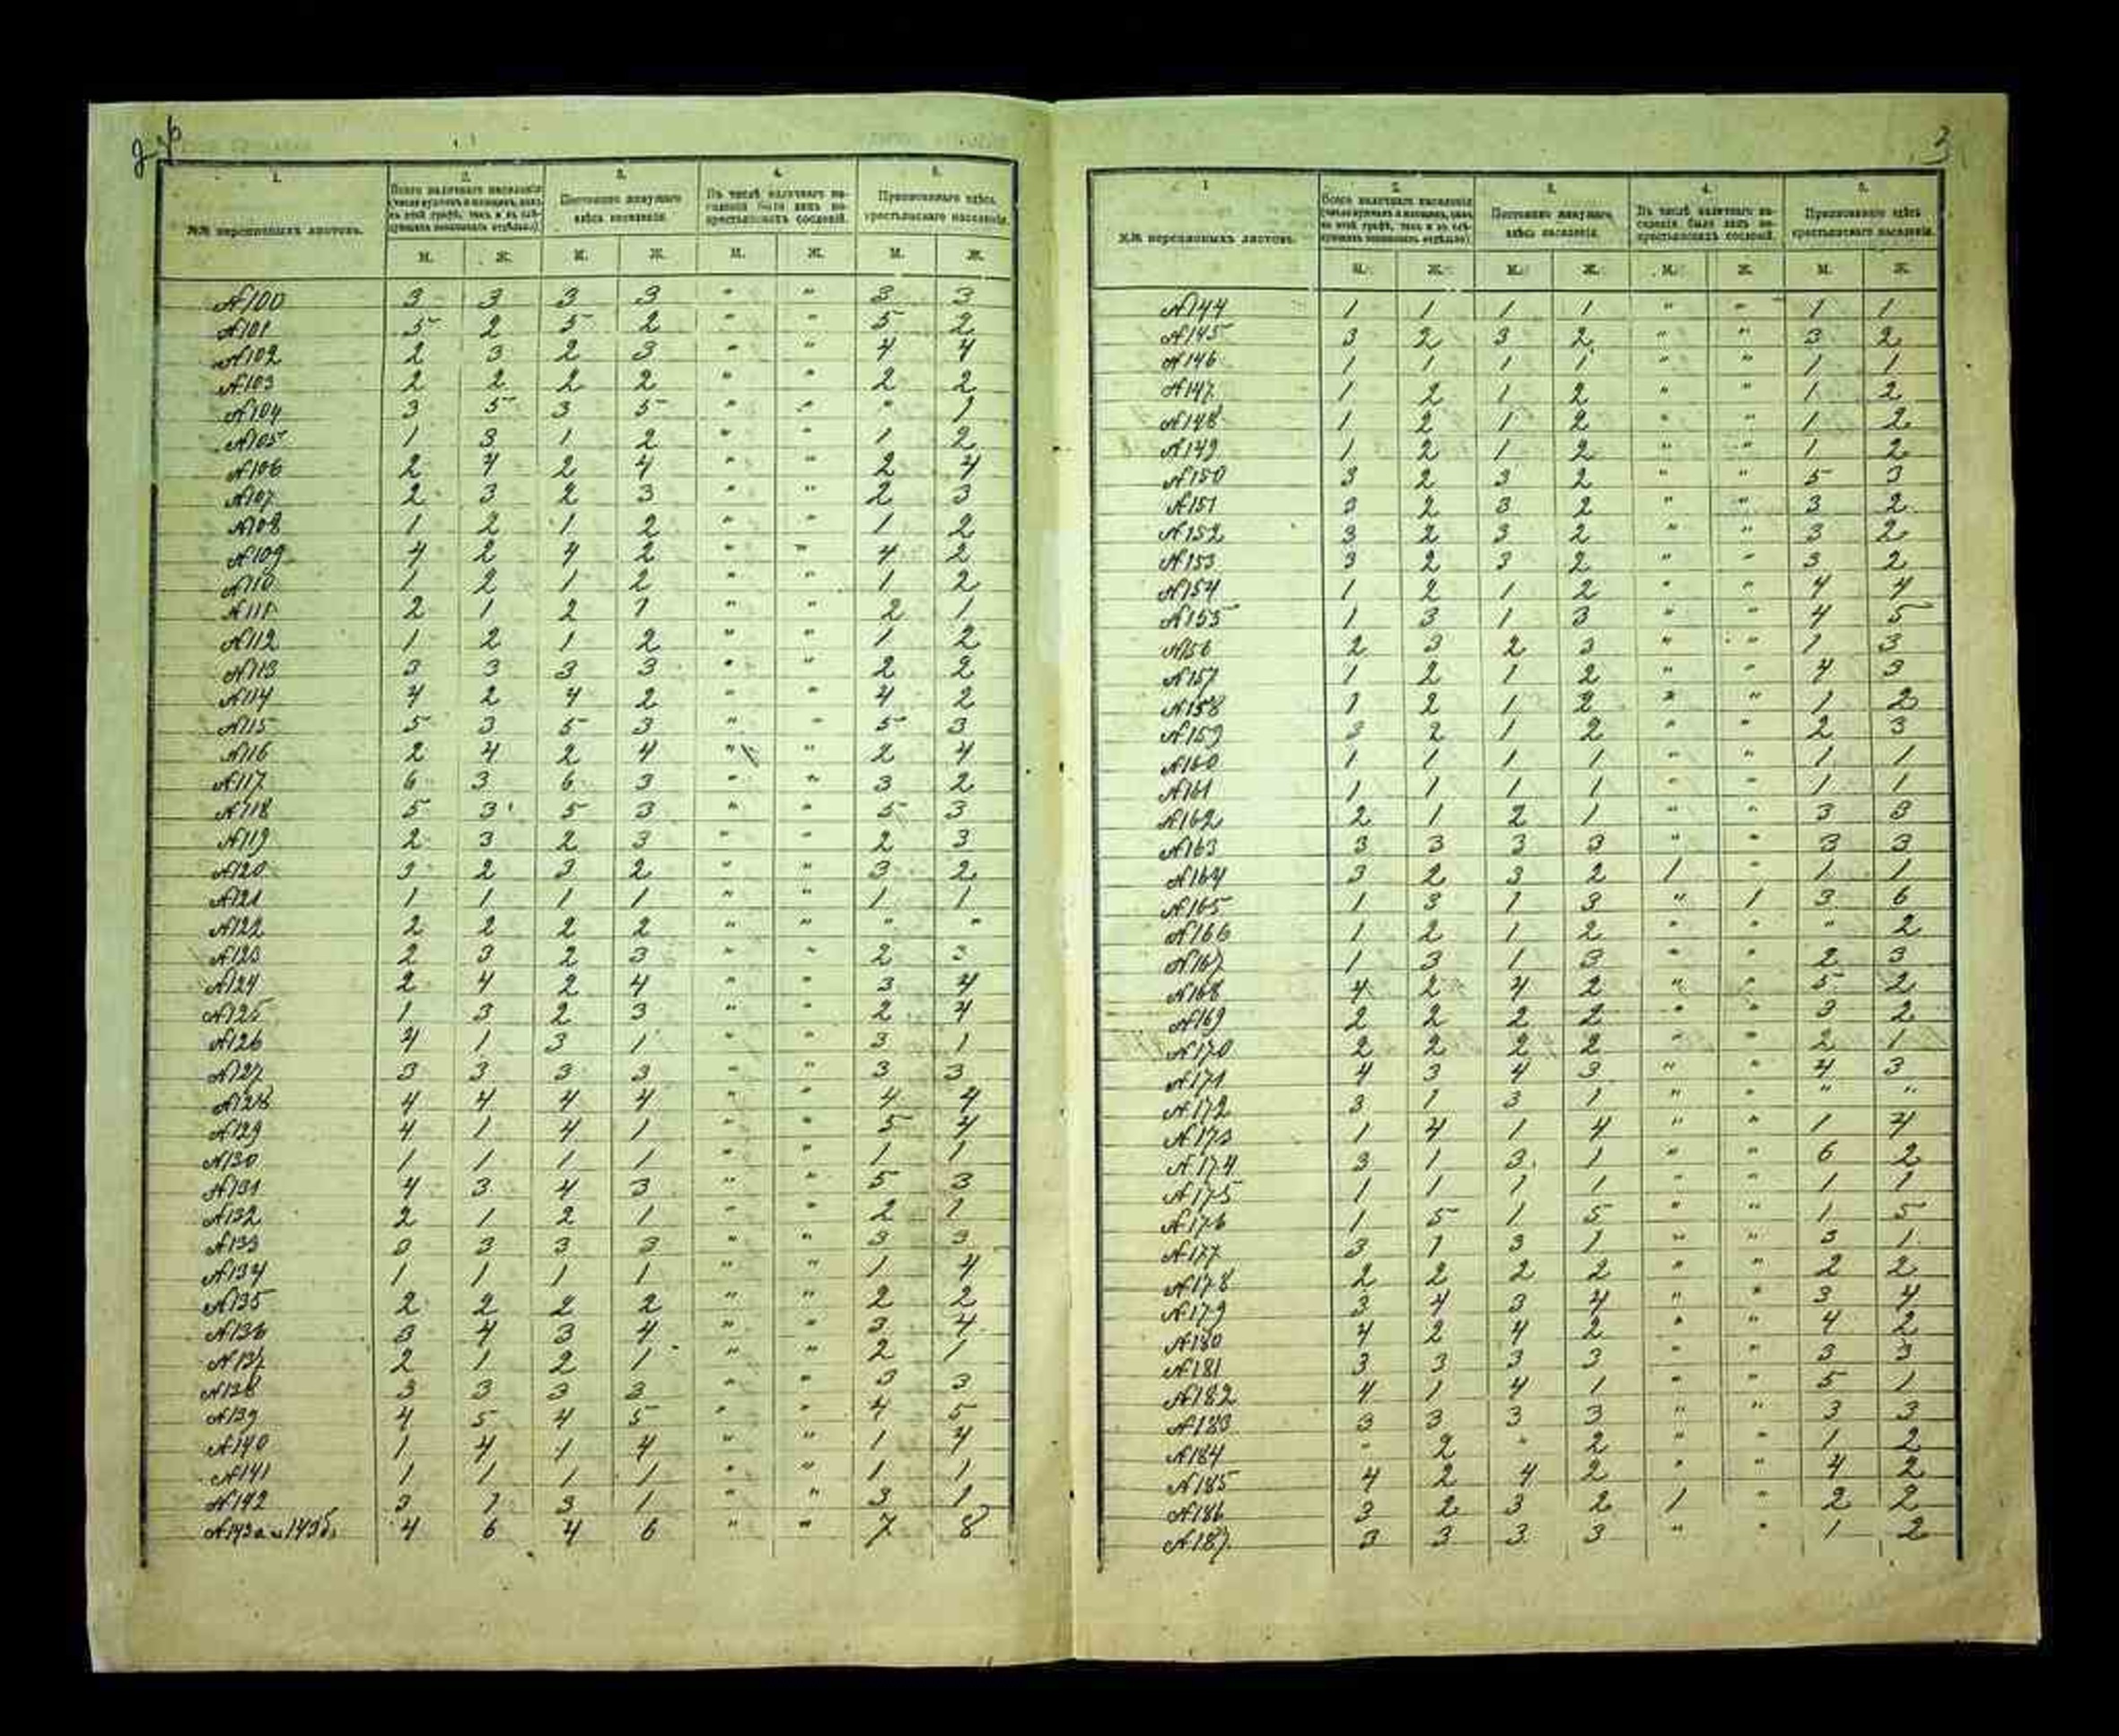 3
1. 2. 3. 4. 5.
№№ переписныхъ листовъ. Всего наличнаго населенія (число мужчинъ и женщинъ, какъ въ этой графѣ, такъ и въ слѣдующихъ показывать отдѣльно). Постоянно живущаго здѣсь населенія. Въ числѣ наличнаго населенія было лицъ некрестьянскихъ сословій. Приписаннаго здѣсь крестьянскаго населенія.
М. Ж. М. Ж. М. Ж. М. Ж.
№100 3 3 3 3 " " 3 3
№101 5 2 5 2 " " 5 2
№102 2 3 2 3 " " 4 4
№103 2 2 2 2 " " 2 2
№104 3 5 3 5 " " " 1
№105 1 3 1 2 " " 1 2
№106 2 4 2 4 " " 2 4
№107 2 3 2 3 " " 2 3
№108 1 2 1 2 " " 1 2
№109 4 2 4 2 " " 4 2
№110 1 2 1 2 " " 1 2
№111 2 1 2 1 " " 2 1
№112 1 2 1 2 " " 1 2
№113 3 3 3 3 " " 2 2
№114 4 2 4 2 " " 4 2
№115 5 3 5 3 " " 5 3
№116 2 4 2 4 " " 2 4
№117 6 3 6 3 " " 3 2
№118 5 3 5 3 " " 5 3
№119 2 3 2 3 " " 2 3
№120 3 2 3 2 " " 3 2
№121 1 1 1 1 " " 1 1
№122 2 2 2 2 " " " "
№123 2 3 2 3 " " 2 3
№124 2 4 2 4 " " 3 4
№125 1 3 2 3 " " 2 4
№126 4 1 3 1 " " 3 1
№127 3 3 3 3 " " 3 3
№128 4 4 4 4 " " 4 4
№129 4 1 4 1 " " 5 4
№130 1 1 1 1 " " 1 1
№131 4 3 4 3 " " 5 3
№132 2 1 2 1 " " 2 1
№133 3 3 3 3 " " 3 3
№134 1 1 1 1 " " 1 4
№135 2 2 2 2 " " 2 2
№136 3 4 3 4 " " 3 4
№137 2 1 2 1 " " 2 1
№138 3 3 3 3 " " 3 3
№139 4 5 4 5 " " 4 5
№140 1 4 1 4 " " 1 4
№141 1 1 1 1 " " 1 1
№142 3 1 3 1 " " 3 1
№143а и 143б. 4 6 4 6 " " 7 8
1 2. 3. 4. 5.
№№ переписныхъ листовъ. Всего наличнаго населенія (число мужчинъ и женщинъ, какъ въ этой графѣ, такъ и въ слѣдующихъ показывать отдѣльно). Постоянно живущаго здѣсь населенія. Въ числѣ наличнаго населенія было лицъ некрестьянскихъ сословій. Приписаннаго здѣсь крестьянскаго населенія.
М. Ж. М. Ж. М. Ж. М. Ж.
№144 1 1 1 1 " " 1 1
№145 3 2 3 2 " " 3 2
№146 1 1 1 1 " " 1 1
№147 1 2 1 2 " " 1 2
№148 1 2 1 2 " " 1 2
№149 1 2 1 2 " " 1 2
№150 3 2 3 2 " " 5 3
№151 3 2 3 2 " " 3 2
№152 3 2 3 2 " " 3 2
№153 3 2 3 2 " " 3 2
№154 1 2 1 2 " " 4 4
№155 1 3 1 3 " " 4 5
№156 2 3 2 3 " " 1 3
№157 1 2 1 2 " " 4 3
№158 1 2 1 2 " " 1 2
№159 3 2 1 2 " " 2 3
№160 1 1 1 1 " " 1 1
№161 1 1 1 1 " " 1 1
№162 2 1 2 1 " " 3 3
№163 3 3 3 3 " " 3 3
№164 3 2 3 2 1 " 1 1
№165 1 3 1 3 " 1 3 6
№166 1 2 1 2 " " " 2
№167 1 3 1 3 " " 2 3
№168 4 2 4 2 " " 5 2
№169 2 2 2 2 " " 3 2
№170 2 2 2 2 " " 2 1
№171 4 3 4 3 " " 4 3
№172 3 1 3 1 " " " "
№173 1 4 1 4 " " 1 4
№174 3 1 3 1 " " 6 2
№175 1 1 1 1 " " 1 1
№176 1 5 1 5 " " 1 5
№177 3 1 3 1 " " 3 1
№178 2 2 2 2 " " 2 2
№179 3 4 3 4 " " 3 4
№180 4 2 4 2 " " 4 2
№181 3 3 3 3 " " 3 3
№182 4 1 4 1 " " 5 1
№183 3 3 3 3 " " 3 3
№184 " 2 " 2 " " 1 2
№185 4 2 4 2 " " 4 2
№186 3 2 3 2 1 " 2 2
№187 3 3 3 3 " " 1 2